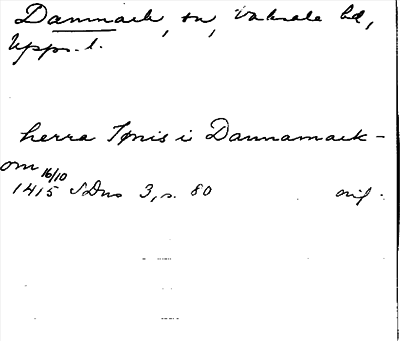 Danmark, sn, Vaksala hd,
Upps. l.
herra Tønis i Dannamark-
om
16/10
1415 SDns 3, s. 80 orig.